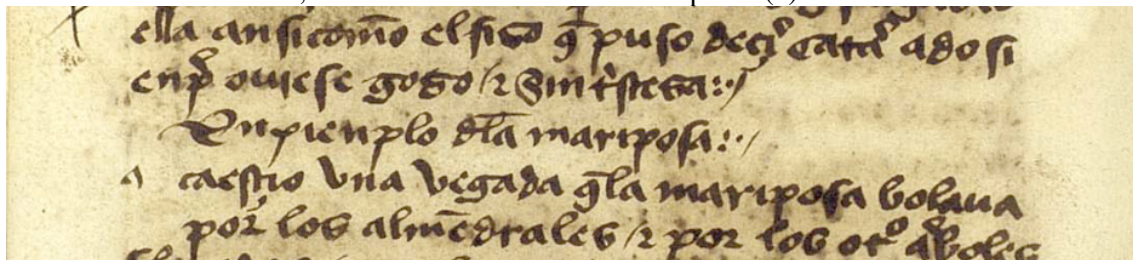 ella ansicomo el fijo q̃ puso deçir catar ado si
enp̃ ouiese gozo & sin tristeza
Enxienplo dla mariposa
a caesçio vna vegada q̃la mariposa bolaua
por los almẽdrales & por los otros arboles